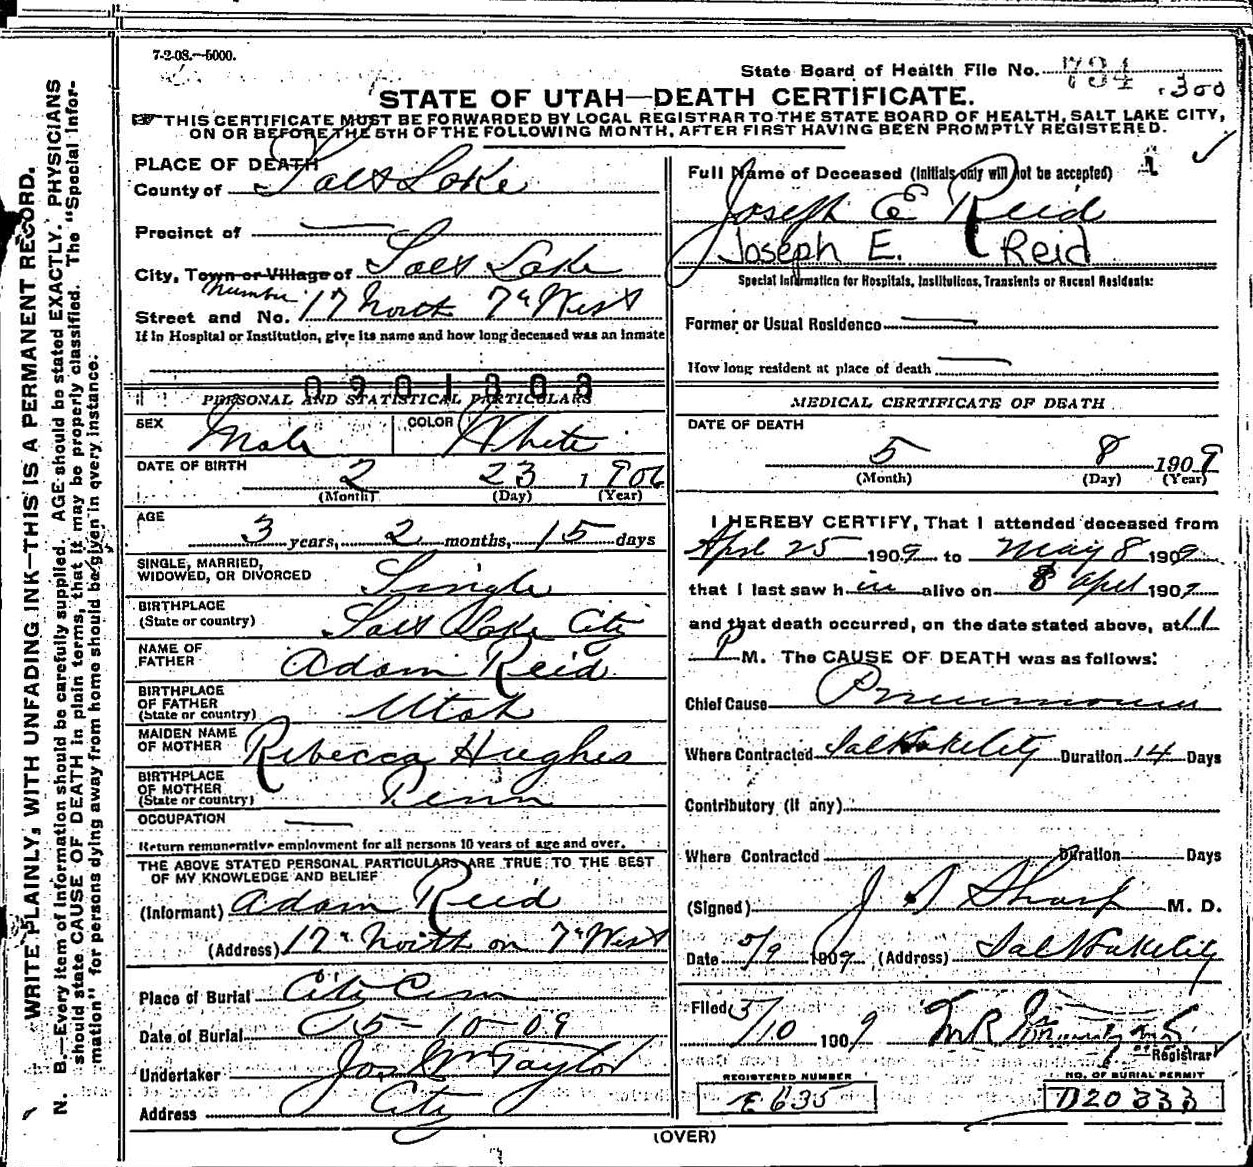 7-2-08.—5000.
State Board of Health File No. 734
.300
STATE OF UTAH—DEATH CERTIFICATE.
THIS CERTIFICATE MUST BE FORWARDED BY LOCAL REGISTRAR TO THE STATE BOARD OF HEALTH, SALT LAKE CITY,
ON OR BEFORE THE 5TH OF THE FOLLOWING MONTH, AFTER FIRST HAVING BEEN PROMPTLY REGISTERED.
WRITE PLAINLY, WITH UNFADING INK—THIS IS A PERMANENT RECORD.
N. B.—Every item of information should be carefully supplied. AGE should be stated EXACTLY. PHYSICIANS
should state CAUSE OF DEATH in plain terms, that it may be properly classified. The "Special Infor-
mation" for persons dying away from home should be given in every instance.
PLACE OF DEATH
County of Salt Lake
Precinct of —
City, Town or Village of Salt Lake
number
Street and No. 17 North 7th West
If in Hospital or Institution, give its name and how long deceased was an inmate
0901303
PERSONAL AND STATISTICAL PARTICULARS
SEX Male COLOR White
DATE OF BIRTH 2 23 1906
(Month) (Day) (Year)
AGE 3 years, 2 months, 15 days
SINGLE, MARRIED,
WIDOWED, OR DIVORCED Single
BIRTHPLACE
(State or country) Salt Lake City
NAME OF
FATHER Adam Reid
BIRTHPLACE
OF FATHER
(State or country) Utah
MAIDEN NAME
OF MOTHER Ribecca Hughes
BIRTHPLACE
OF MOTHER
(State or country) Penn
OCCUPATION —
Return remunerative employment for all persons 10 years of age and over.
THE ABOVE STATED PERSONAL PARTICULARS ARE TRUE TO THE BEST
OF MY KNOWLEDGE AND BELIEF
(Informant) Adam Reid
(Address) 17th North on 7th West
Place of Burial City Cem
Date of Burial 5-10-09
Undertaker Jos Wm Taylor
Address City
Full Name of Deceased (Initials only will not be accepted) 1
Joseph E Reid
Joseph E. Reid
Special Information for Hospitals, Institutions, Transients or Recent Residents:
Former or Usual Residence —
How long resident at place of death —
MEDICAL CERTIFICATE OF DEATH
DATE OF DEATH
5 8 1909
(Month) (Day) (Year)
I HEREBY CERTIFY, That I attended deceased from
Aprl 25 1909 to May 8 1909
that I last saw him alive on 8 Aprl 1909
and that death occurred, on the date stated above, at 11
P M. The CAUSE OF DEATH was as follows:
Chief Cause Pneumonia
Where Contracted Salt Lake City Duration 14 Days
Contributory (if any)
Where Contracted Duration Days
(Signed) J S Sharp M. D.
Date 5/9 1909 (Address) Salt Lake City
Filed 5/10 1909
Registrar
REGISTERED NUMBER
E 635
NO. OF BURIAL PERMIT
D20333
(OVER)